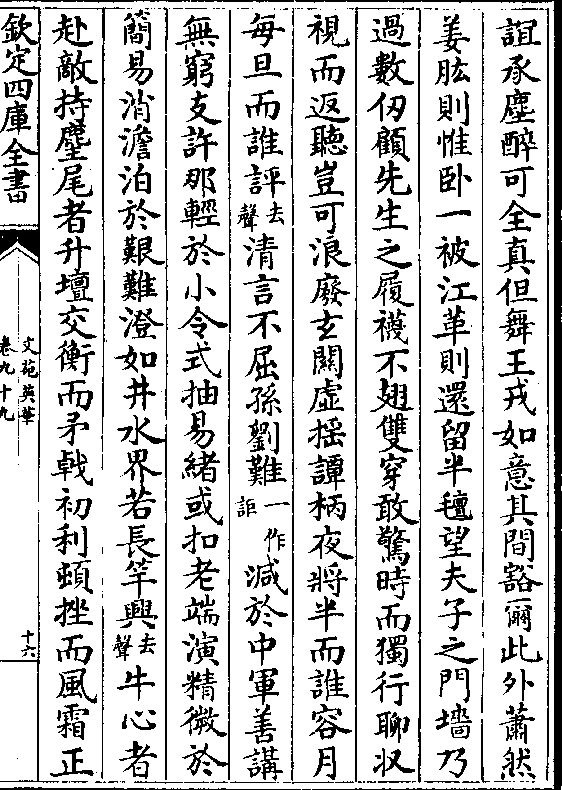 誼承塵醉可全真但舞王戎如意其間豁爾此外蕭然
姜肱則惟卧一被江革則還留半氊望夫子之門墻乃
過數仭顧先生之履襪不翅雙穿敢驚時而獨行聊収
視而返聽豈可浪廢玄關虚揺譚柄夜將半而誰容月
每旦而誰評去聲清言不屈孫劉難一作詎減於中軍善講
無窮支許那輕於小令式抽易緒或扣老端演精微於
簡易消澹泊於艱難澄如井水界若長竿興去聲牛心者
赴敵持麈尾者升壇交衡而矛戟初利頓挫而風霜正
欽定四庫全書
文苑英華
卷九十九
十六